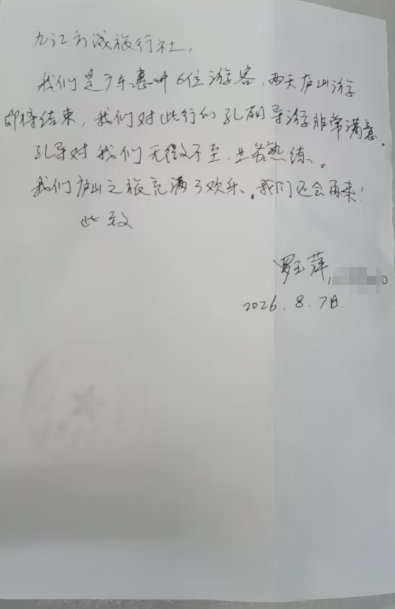 九江市诚旅行社，
我们是广东惠州6位游客，两天庐山游
即将结束，我们对此行的孔丽导游非常满意。
孔导对我们无微不至，业务熟练。
我们庐山之旅充满了欢乐。我们还会再来！
此致
罗玉萍，
2026.8.7日.